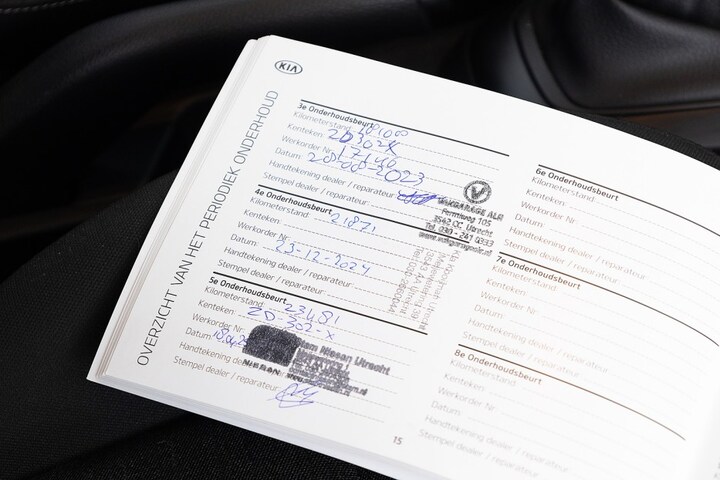 KIA
OVERZICHT VAN HET PERIODIEK ONDERHOUD
3e Onderhoudsbeurt
Kilometerstand:
Kenteken:
Werkorder Nr: 17446
Datum:
Handtekening dealer / reparateur:
Stempel dealer / reparateur:
VAKGARAGE ALR
Fermiweg 105
3542 CC, Utrecht
Tel. 030 - 241 0333
4e Onderhoudsbeurt
Kilometerstand: 21871
Kenteken:
Werkorder Nr:
Datum: 23-12-2024
Handtekening dealer / reparateur:
Stempel dealer / reparateur:
5e Onderhoudsbeurt
Kilometerstand: 23481
Kenteken: ZD-302-X
Werkorder Nr:
Datum:
Handtekening dealer
Stempel dealer / reparateur:
Nissan Utrecht
NISSAN
15
6e Onderhoudsbeurt
Kilometerstand:
Kenteken:
Werkorder Nr:
Datum:
Handtekening dealer / reparateur:
Stempel dealer / reparateur:
7e Onderhoudsbeurt
Kilometerstand:
Kenteken:
Werkorder Nr:
Datum:
Handtekening dealer / reparateur:
Stempel dealer / reparateur:
8e Onderhoudsbeurt
Kilometerstand:
Kenteken:
Werkorder Nr:
Datum:
Handtekening dealer / reparateur:
Stempel dealer / reparateur: